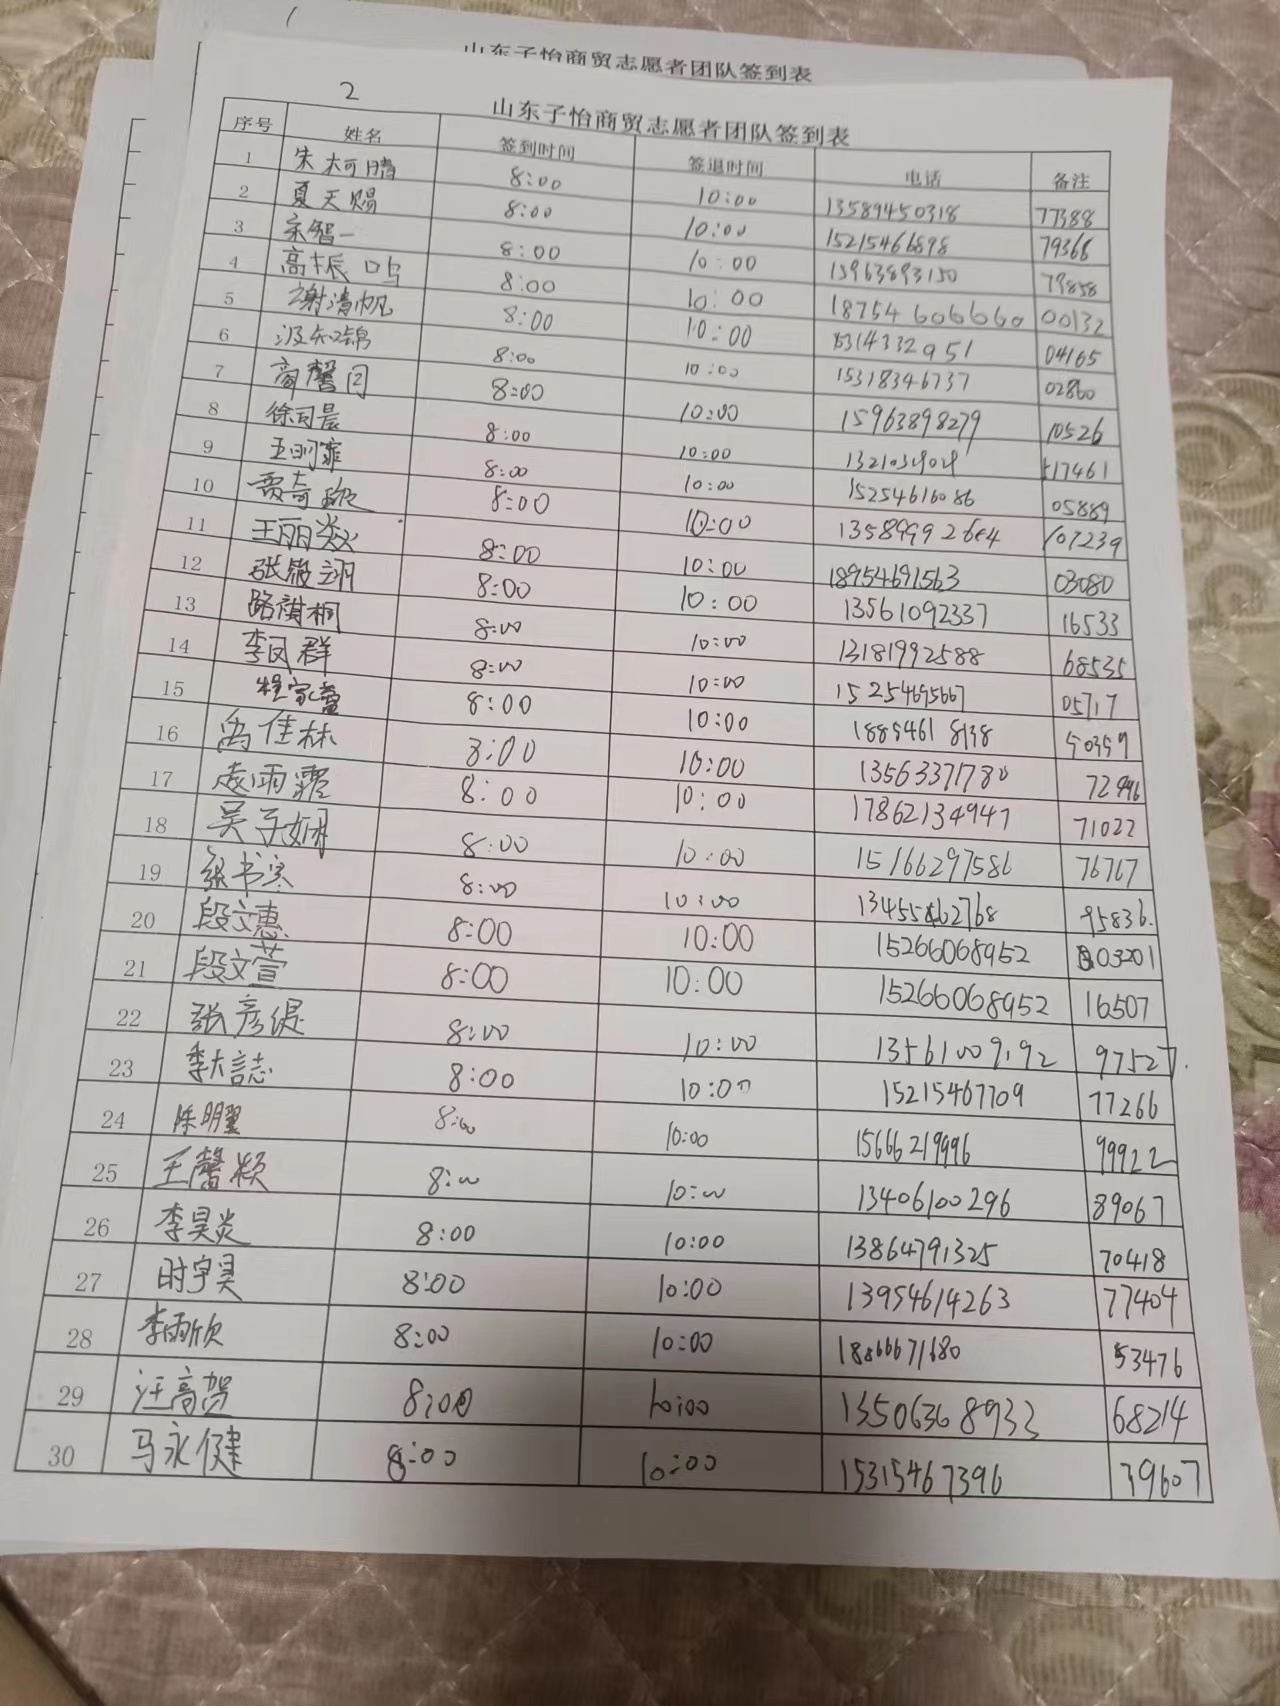 1
山东子怡商贸志愿者团队签到表
2
山东子怡商贸志愿者团队签到表
序号 姓名 签到时间 签退时间 电话 备注
1 朱柯腾 8:00 10:00 13589450318 77388
2 夏天赐 8:00 10:00 15215466898 79368
3 宋智一 8:00 10:00 15963893150 79858
4 高振鸣 8:00 10:00 18754606660 00132
5 谢清帆 8:00 10:00 15314332951 04165
6 8:00 10:00 15318346737 02860
7 8:00 10:00 15963898279 10526
8 徐司晨 8:00 10:00 17461
9 8:00 10:00 15254616086 05889
10 贾奇 8:00 10:00 107239
11 王丽焱 8:00 10:00 18954691563 03080
12 张 翊 8:00 10:00 13561092337 16533
13 路祺桐 8:00 10:00 13181992588 68535
14 李凤群 8:00 10:00 15254695667 05717
15 程家 8:00 10:00 18854618138 50359
16 禹佳林 8:00 10:00 13563371780 72996
17 凌雨霏 8:00 10:00 17862134947 71022
18 吴子娴 8:00 10:00 15166297586 76767
19 张书寒 8:00 10:00 13455462768 95836.
20 段文惠 8:00 10:00 15266068952 03201
21 段文萱 8:00 10:00 15266068952 16507
22 张彦缇 8:00 10:00 13561009192 97527.
23 李大誌 8:00 10:00 15215467709 77266
24 陈明翼 8:00 10:00 15666219996 99922
25 王馨颖 8:00 10:00 13406100296 89067
26 李昊炎 8:00 10:00 13864791325 70418
27 时宇昊 8:00 10:00 13954614263 77404
28 李雨欣 8:00 10:00 18866671680 53476
29 汪高贺 8:00 10:00 13506368933 68214
30 马永健 8:00 10:00 15315467396 39607